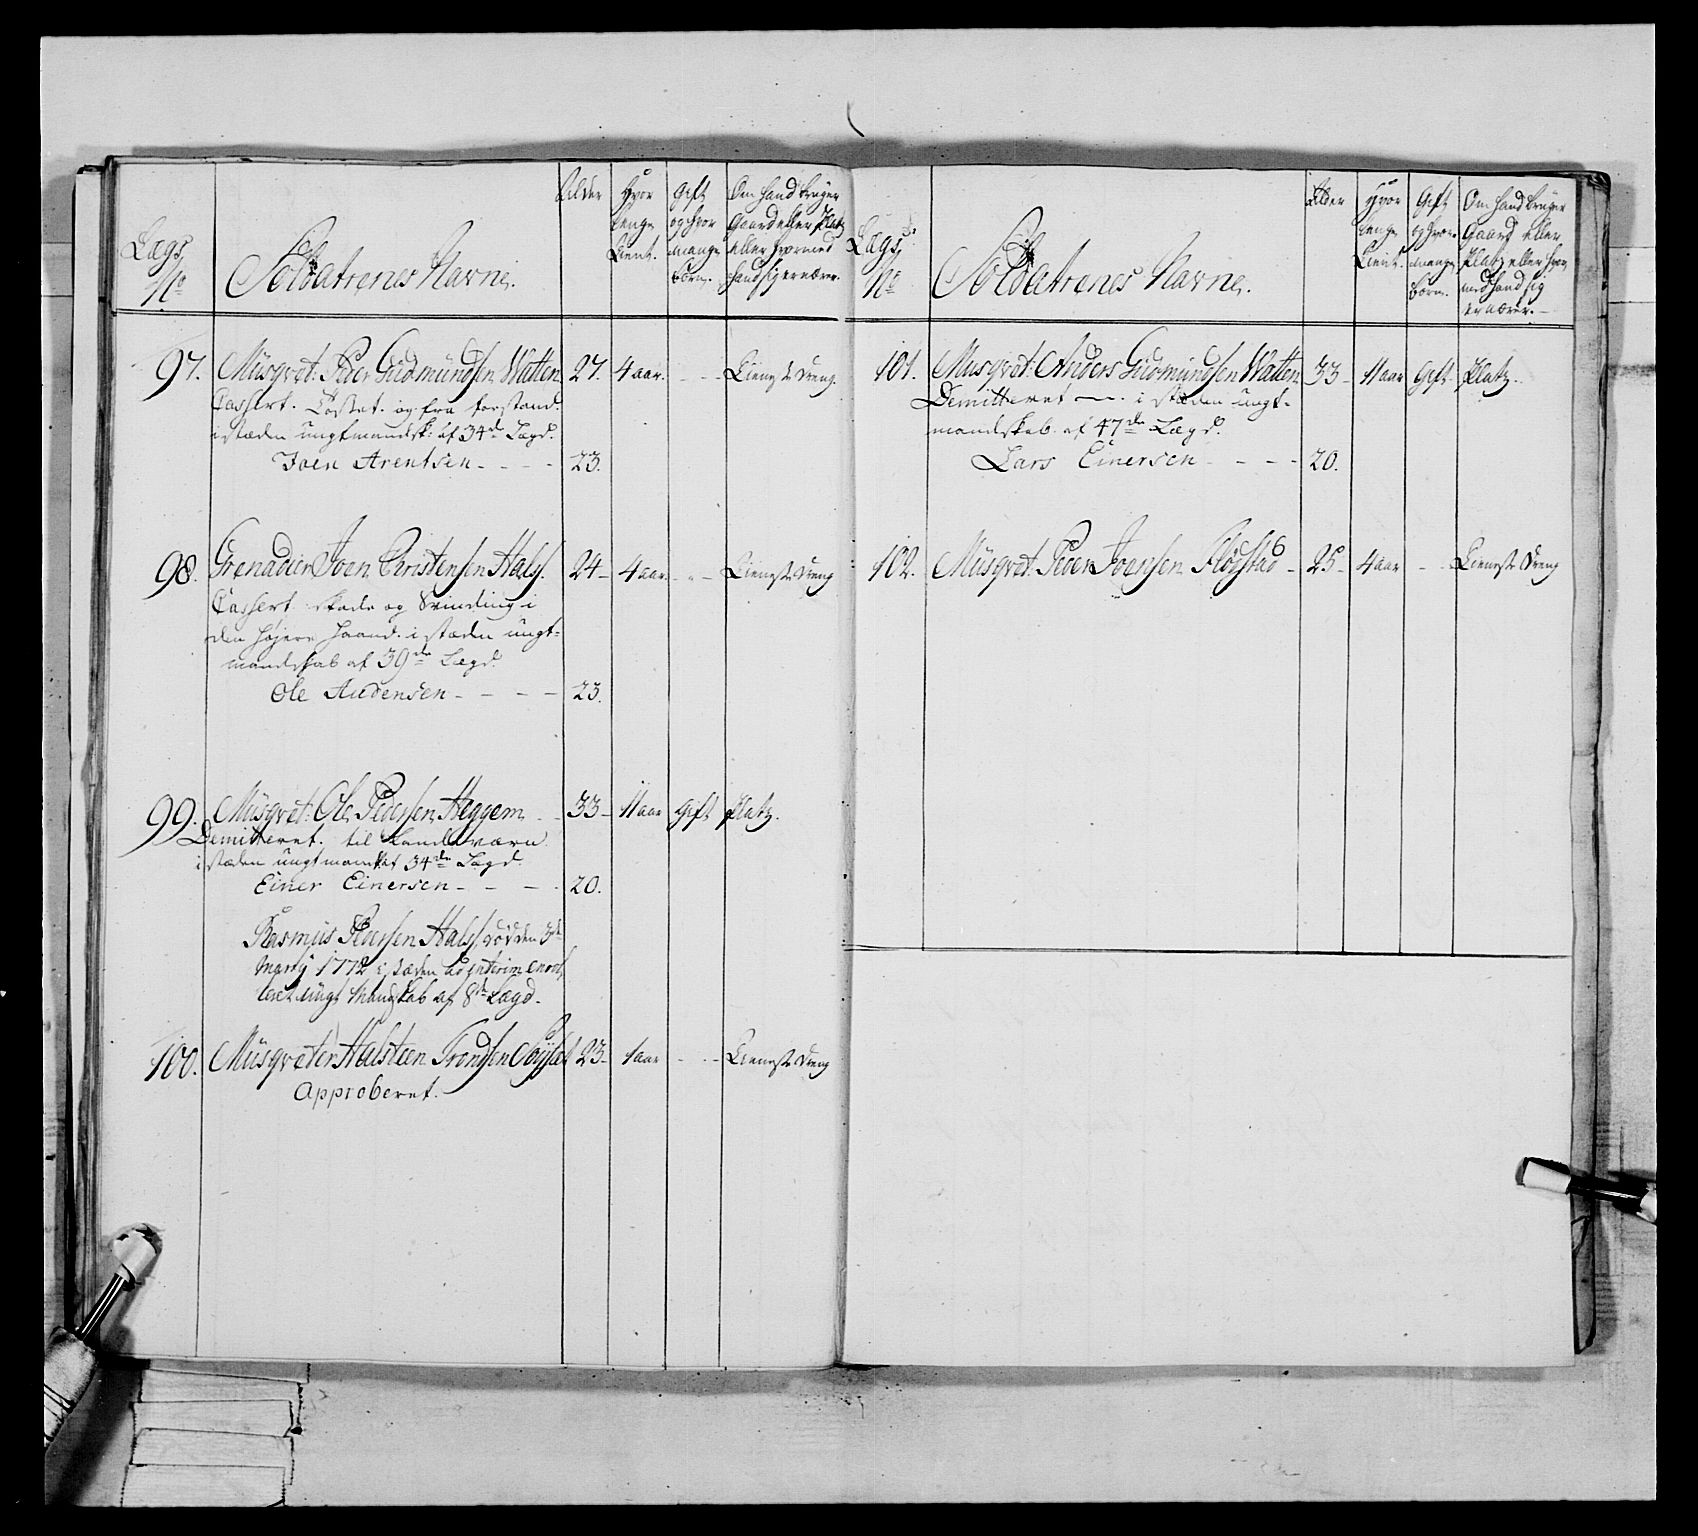 Lægs
No
Soldatrenes Navne.
Alder
Hvor
længe
tient.
Gift
og hvor
mange
børn.
Om hand bruger
Gaard eller Platz
eller hvormed
hand sig ernærer.
97. Musqvet. Peder Gudmundsen Watten 27. 4 aar. - - - Tieneste Dreng.
Casseret. og fra forstand.
i stæden ungtmandsk: af 34de Lægd.
Joen Arentsen - - - - 23.
98. Grenadier Joen Christensen Hals. 24 - 4 aar. - - - Tieneste Dreng
Cassert skade og Svinding i
den højere haand. i stæden ungt-
mandskab af 39de Lægd.
Ole Audensen - - - - 23.
99. Musqvet. Ole Pedersen Heggem - - 33 - 11 aar Gift Platz.
Demitteret. til Landeværn
i stæden ungtmandskab 34de Lægd.
Einer Einersen - - - - 20.
Rasmus Pedersen Hals, død den 3de
Marty 1772 i stæden ad interim enroul
leret ungt Mandskab af 8de Lægd.
100. Musqveter Halsteen Trondsen 23 - 1 aar - - - Tieneste Dreng
Approberet.
Lægs
No
Soldatrenes Navne.
Alder
Hvor
længe
tient.
Gift
og hvor
mange
børn.
Om hand bruger
Gaard eller
Platz eller hvor
med hand sig
ernærer. -
101. Musqvet. Anders Gudmundsen Watten 33 - 11 aar Gift Platz.
Demitteret - i stæden ungt-
mandskab af 47de Lægd.
Lars Einersen - - - - 20.
102. Musqvet. Peder Joensen Flogstad - 25 - 4 aar - - Tieneste Dreng